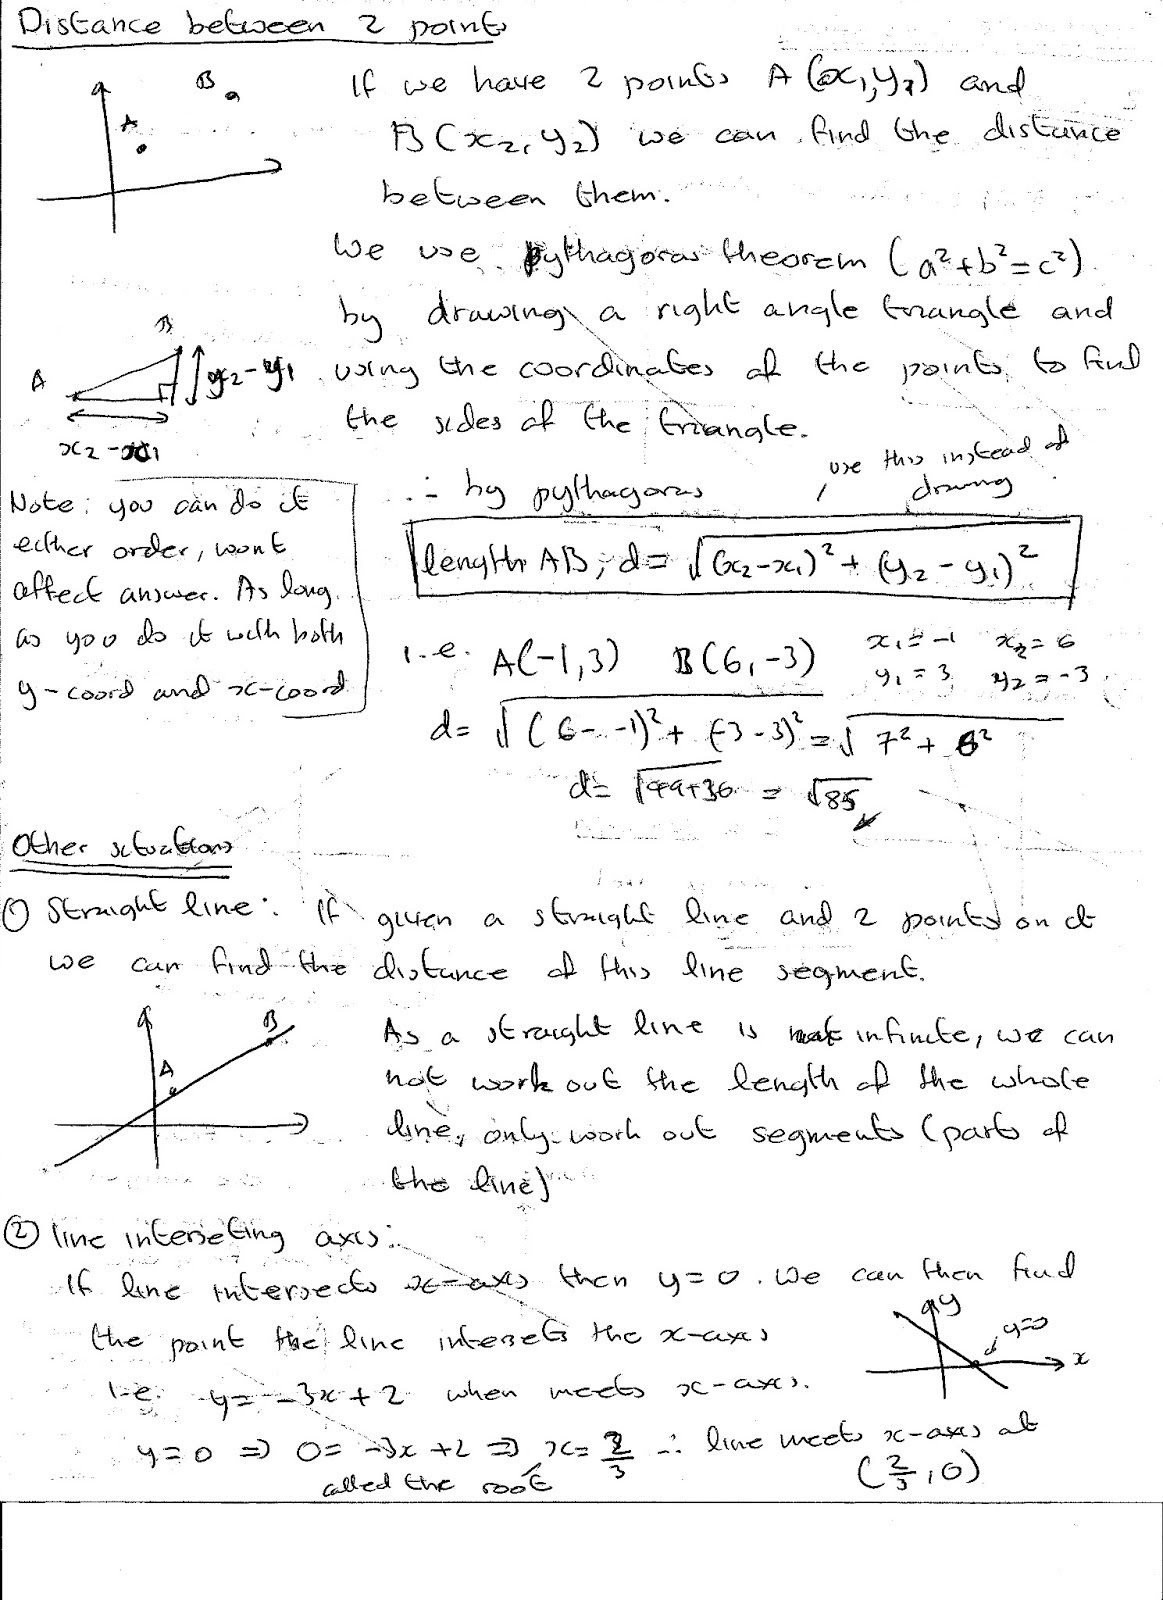 Distance between 2 points
B
A
If we have 2 points A (x₁, y₁) and
B (x₂, y₂) we can find the distance
between them.
We use pythagoras theorem (a²+b²=c²)
by drawing a right angle triangle and
using the coordinates of the points to find
the sides of the triangle.
B
A
y₂-y₁
x₂-x₁
∴ by pythagoras
use this instead of
drawing
length AB, d= √(x₂-x₁)² + (y₂-y₁)²
Note: you can do it
either order, wont
affect answer. As long
as you do it with both
y-coord and x-coord
i.e. A(-1,3) B(6,-3)
x₁=-1 x₂=6
y₁=3 y₂=-3
d= √(6--1)² + (-3-3)² = √7² + 6²
d= √49+36 = √85
Other situations
① Straight line: If given a straight line and 2 points on it
we can find the distance of this line segment.
B
A
As a straight line is infinite, we can
not work out the length of the whole
line, only work out segments (parts of
the line)
② line interseting axis:
If line intersects x-axis then y=0. We can then find
the point the line intersets the x-axis
y
y=0
x
i.e. y= -3x+2 when meets x-axis.
y=0 ⇒ 0= -3x+2 ⇒ x= 2/3 ∴ line meets x-axis at
(2/3, 0)
called the root